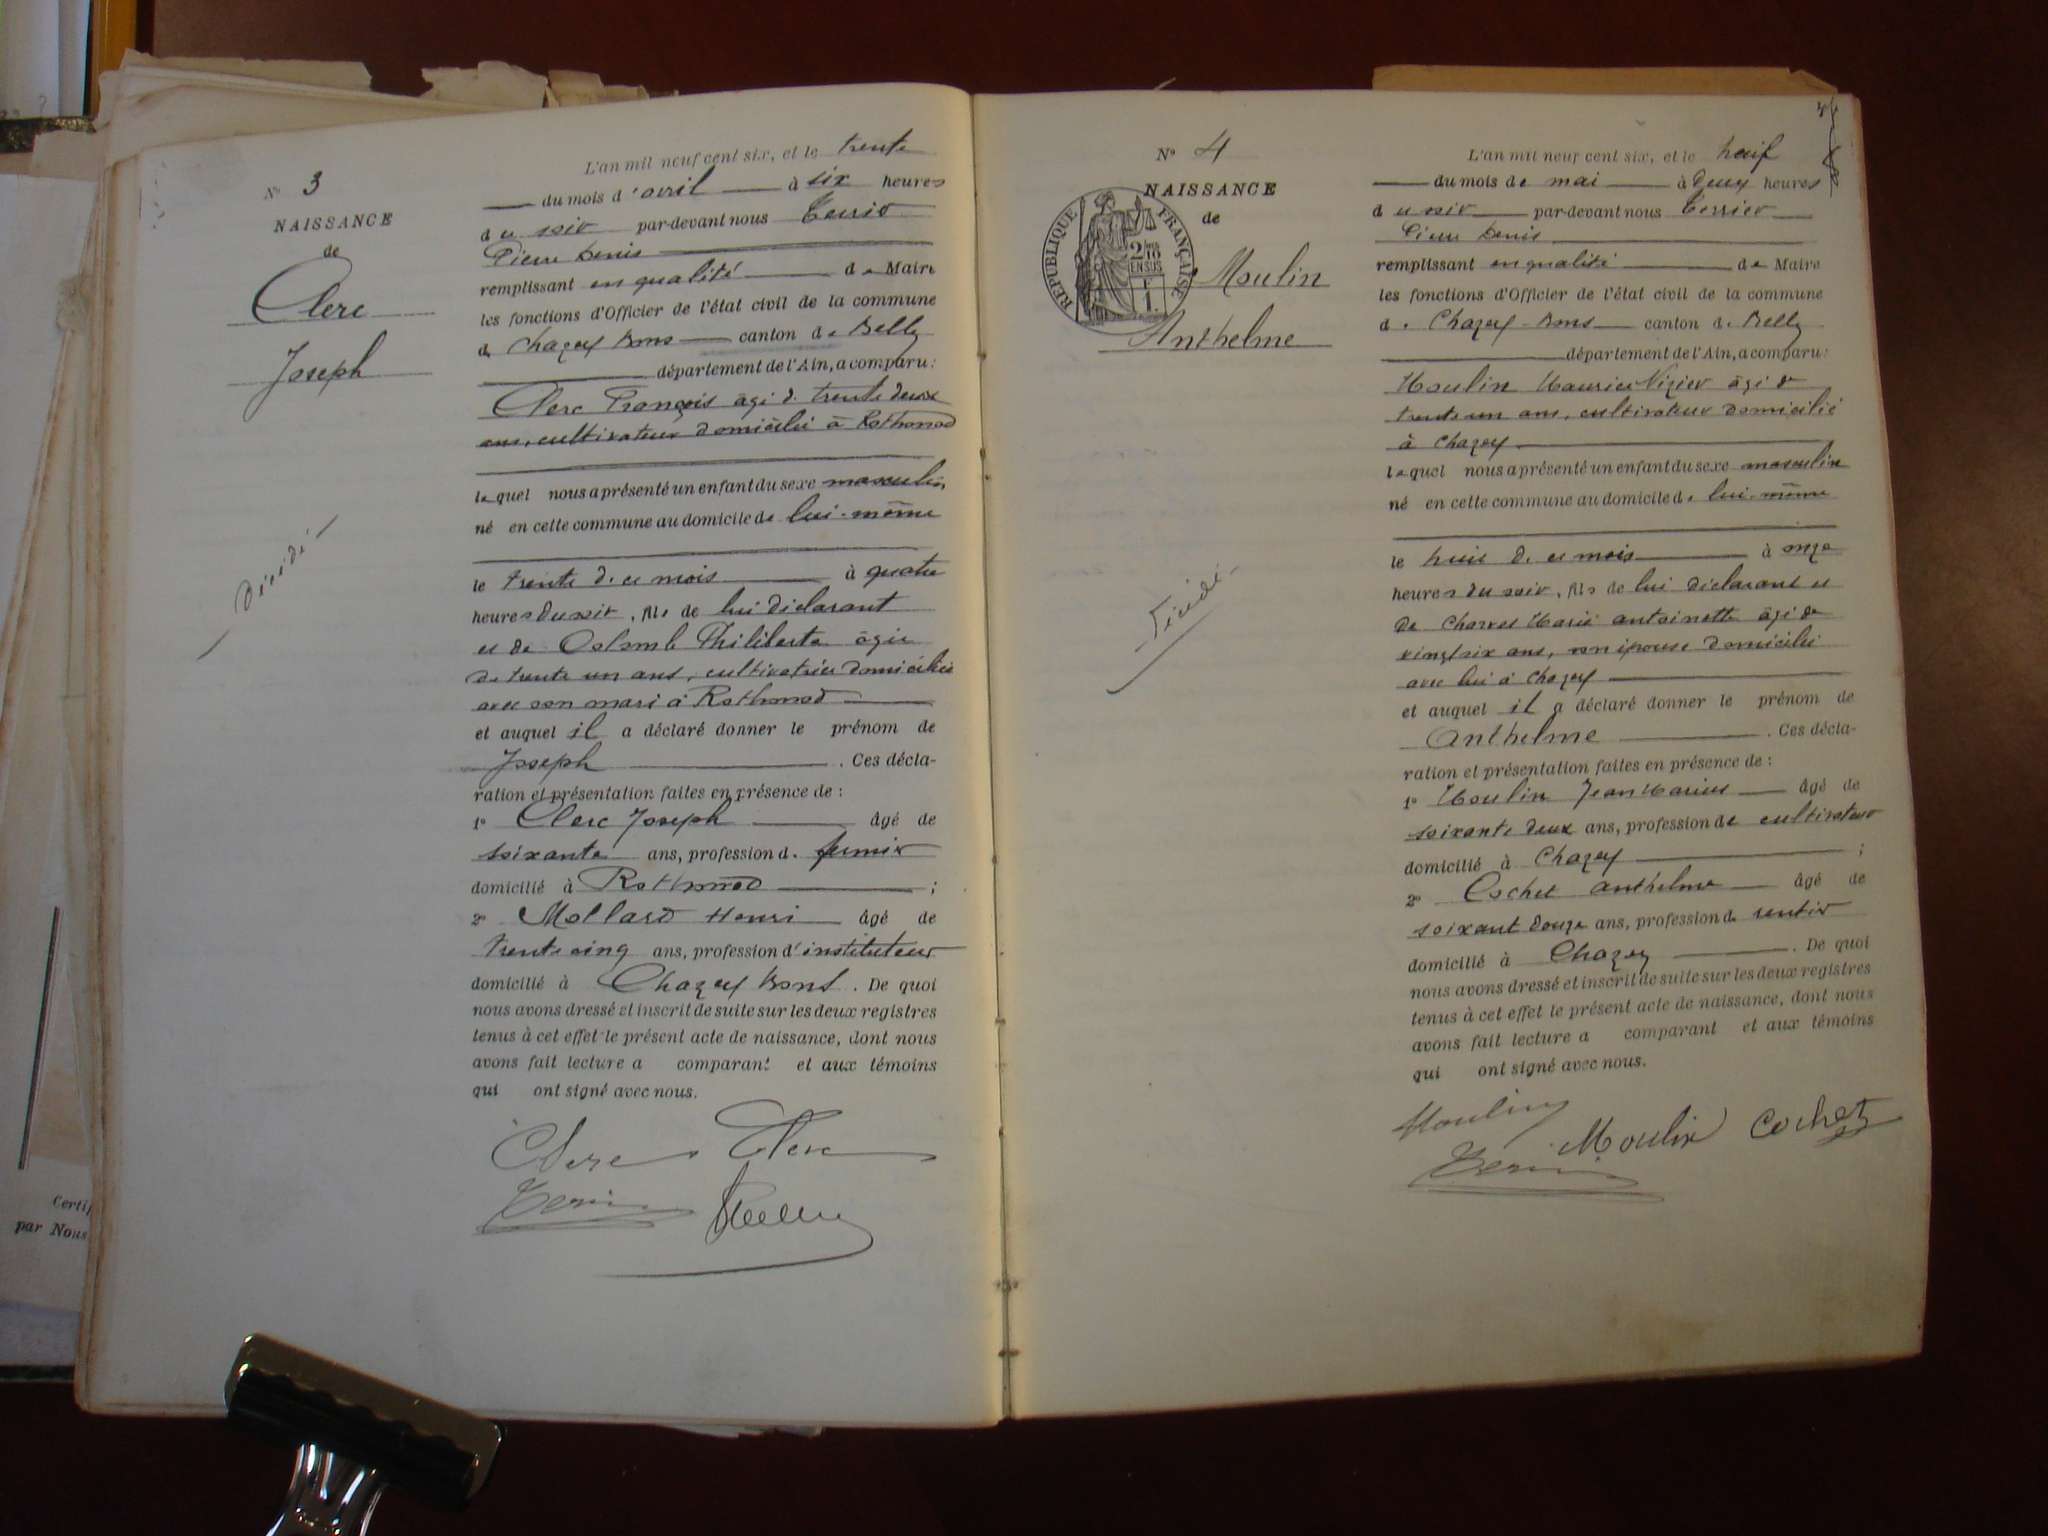 N° 3
NAISSANCE
de
Clerc
Joseph
Décédé
L'an mil neuf cent six, et le trente
du mois d'avril à six heures
du soir par-devant nous Terrier
Pierre Denis
remplissant en qualité de Maire
les fonctions d'Officier de l'état civil de la commune
de Chazey Bons canton de Belley
département de l'Ain, a comparu:
Clerc François âgé de trente deux
ans, cultivateur domicilié à Rothonod
lequel nous a présenté un enfant du sexe masculin,
né en cette commune au domicile de lui-même
le trente de ce mois à quatre
heures du soir, fils de lui déclarant
et de Colomb Philiberte âgée
de trente un ans, cultivatrice domiciliée
avec son mari à Rothonod
et auquel il a déclaré donner le prénom de
Joseph. Ces décla-
ration et présentation faites en présence de:
1° Clerc Joseph âgé de
soixante ans, profession de fermier
domicilié à Rothonod;
2° Mollard Henri âgé de
trente cinq ans, profession d'instituteur
domicilié à Chazey Bons. De quoi
nous avons dressé et inscrit de suite sur les deux registres
tenus à cet effet le présent acte de naissance, dont nous
avons fait lecture a comparant et aux témoins
qui ont signé avec nous.
Clerc Clerc
Terrier
N° 4
NAISSANCE
de
RÉPUBLIQUE FRANÇAISE
2/10
EN SUS
1
Moulin
Anthelme
Décédé
L'an mil neuf cent six, et le neuf
du mois de mai à deux heures
du soir par-devant nous Terrier
Pierre Denis
remplissant en qualité de Maire
les fonctions d'Officier de l'état civil de la commune
de Chazey-Bons canton de Belley
département de l'Ain, a comparu:
Moulin Maurice Nizier âgé de
trente un ans, cultivateur domicilié
à Chazey
lequel nous a présenté un enfant du sexe masculin
né en cette commune au domicile de lui-même
le huit de ce mois à onze
heures du soir, fils de lui déclarant et
de Charvet Marie antoinette âgé de
vingt six ans, son épouse domicilié
avec lui à Chazey
et auquel il a déclaré donner le prénom de
Anthelme. Ces décla-
ration et présentation faites en présence de:
1° Moulin Jean Marius âgé de
soixante deux ans, profession de cultivateur
domicilié à Chazey;
2° Cochet anthelme âgé de
soixant douze ans, profession de rentier
domicilié à Chazey. De quoi
nous avons dressé et inscrit de suite sur les deux registres
tenus à cet effet le présent acte de naissance, dont nous
avons fait lecture a comparant et aux témoins
qui ont signé avec nous.
Moulin
Moulin Cochet
Terrier
Certif
par Nous